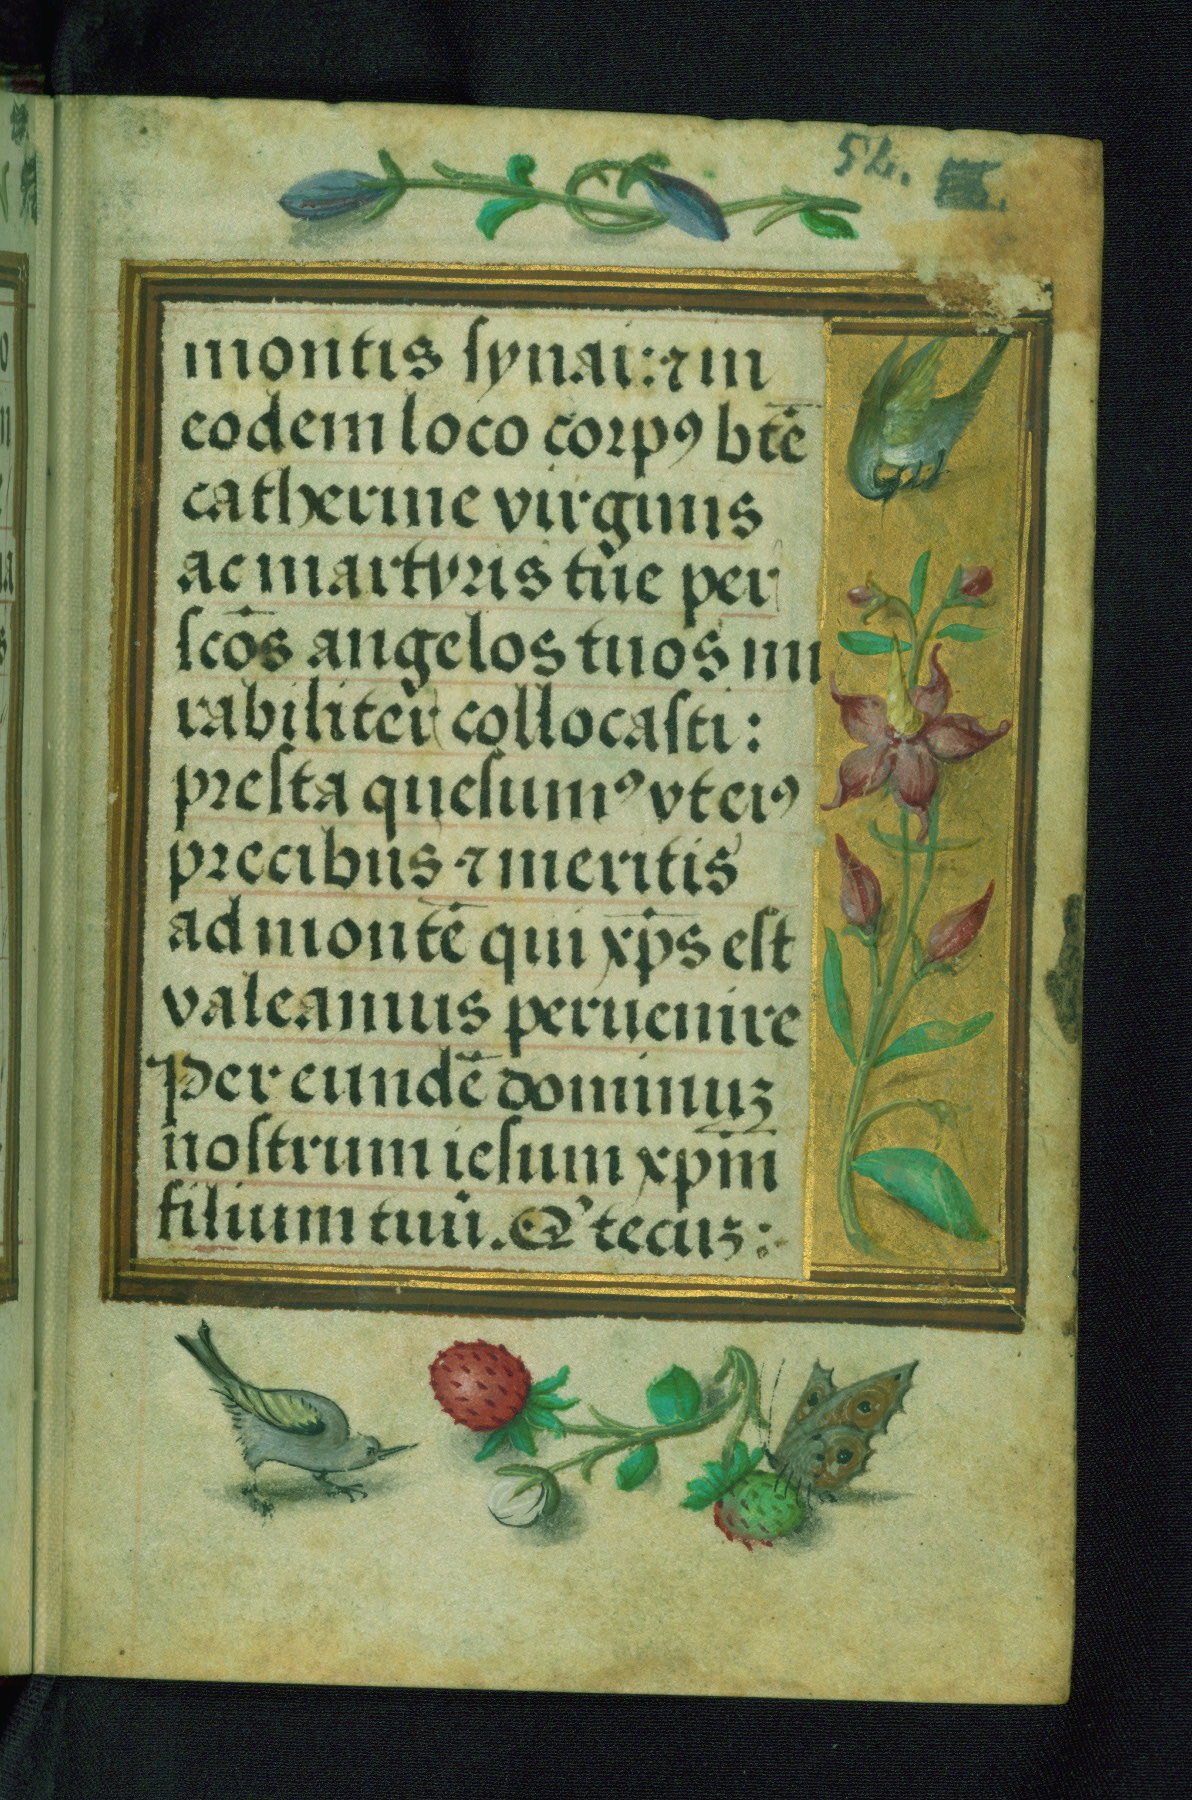 52.
montis synai: ⁊ in
eodem loco corpꝰ btē
catherine virginis
ac martyris tūe per
scōs angelos tuos mi
rabiliter collocasti :
presta quesumꝰ vt eiꝰ
precibus ⁊ meritis
ad montē qui xp̄s est
valeamus peruenire
Per eundē dominuꝫ
nostrum iesum xpm̄
filium tuū. Q' tecuꝫ :